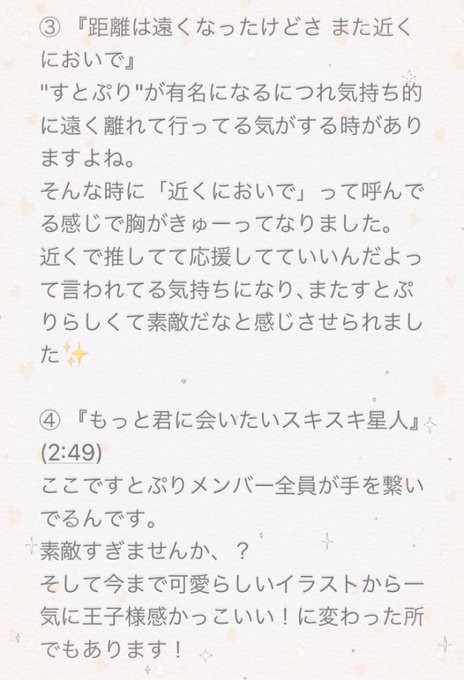 ③ 『距離は遠くなったけどさ また近く
においで』
"すとぷり"が有名になるにつれ気持ち的
に遠く離れて行ってる気がする時があり
ますよね。
そんな時に「近くにおいで」って呼んで
る感じで胸がきゅーってなりました。
近くで推してて応援してていいんだよっ
て言われてる気持ちになり､またすとぷ
りらしくて素敵だなと感じさせられまし
た✨
④ 『もっと君に会いたいスキスキ星人』
(2:49)
ここですとぷりメンバー全員が手を繋い
でるんです。
素敵すぎませんか、？
そして今まで可愛らしいイラストから一
気に王子様感かっこいい！に変わった所
でもあります！